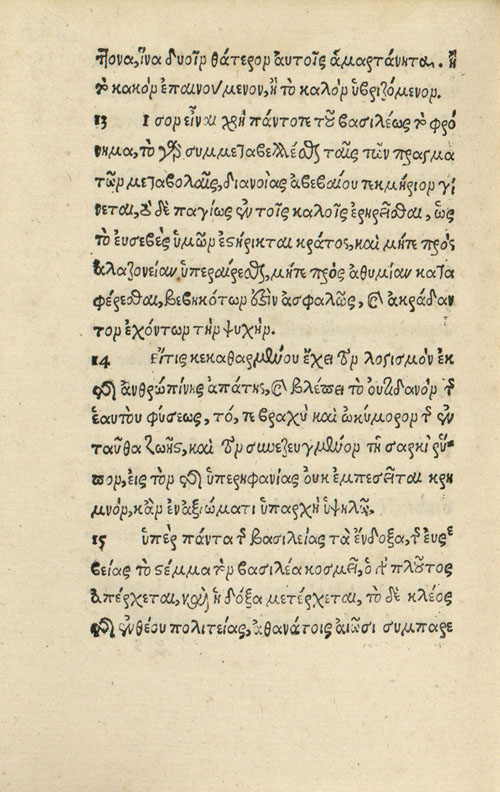 πονα, ἵνα δυοῖν θάτερον αυτοῖς ἁμαρτάνηται. ἢ
τὸ κακὸν ἐπαινούμενον, ἢ τὸ καλὸν ὑβριζόμενον.
13 Ισον εἶναι χρὴ πάντοτε τοῦ βασιλέως τὸ φρό
νημα, τὸ γὰρ συμμεταβάλλεσθαι ταῖς τῶν πραγμα
των μεταβολαῖς, διανοίας ἀβεβαίου τεκμήριον γί
νεται, τὸ δὲ παγίως ἐν τοῖς καλοῖς ἐρηρεῖσθαι, ὡς
τὸ ευσεβὲς ὑμῶν ἐστήρικται κράτος, καὶ μήτε πρὸς
ἀλαζονείαν ὑπεραίρεσθαι, μήτε πρὸς ἀθυμίαν κατα
φέρεσθαι, βεβηκότων ὀξὶν ἀσφαλῶς, καὶ ἀκράδαν
τον ἐχόντων τὴν ψυχήν.
14 Εἴ τις κεκαθαρμένον ἔχει τὸν λογισμὸν ἐκ
τῆς ἀνθρωπίνης ἀπάτης, καὶ βλέπει τὸ οὐτιδανὸν τῆς
ἑαυτοῦ φύσεως, τό, τε βραχὺ καὶ ὠκύμορον τῆς ἐν
ταῦθα ζωῆς, καὶ τὸν συνεζευγμένον τῇ σαρκὶ ῥύ-
πον, εἰς τὸν τῆς ὑπερηφανίας οὐκ ἐμπεσεῖται κρη
μνόν, κἂν ἐν ἀξιώματι ὑπάρχῃ ὑψηλῷ.
15 ὑπὲρ πάντα τῆς βασιλείας τὰ ἔνδοξα, τῆς εὐσε
βείας τὸ στέμμα τὸν βασιλέα κοσμεῖ, ὁ γὰρ πλοῦτος
ἀπέρχεται, καὶ ἡ δόξα μετέρχεται, τὸ δὲ κλέος
τῆς ἐνθέου πολιτείας, ἀθανάτοις αἰῶσι συμπαρε